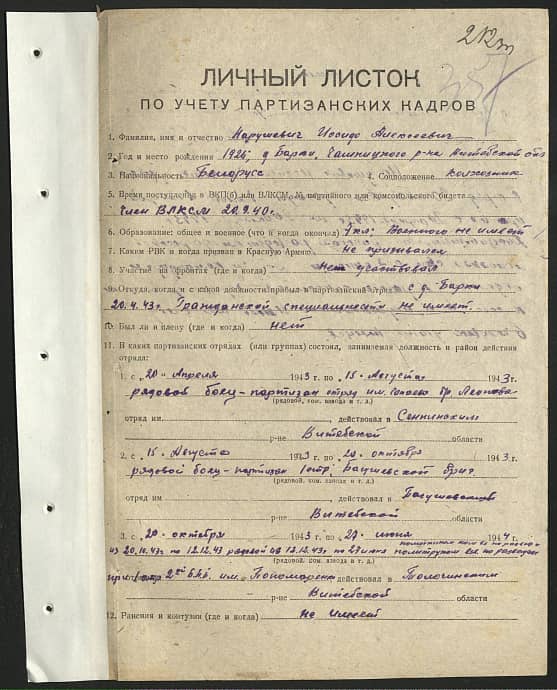 ЛИЧНЫЙ ЛИСТОК
ПО УЧЕТУ ПАРТИЗАНСКИХ КАДРОВ
1. Фамилия, имя и отчество Марушевич Алексеевич
2. Год и место рождения 1926, д Барки, Чашницкого р-на Витебской обл
3. Национальность Белорусс 4. Соцположение колхозник
5. Время поступления в ВКП(б) или ВЛКСМ, № партийного или комсомольского билета
Член ВЛКСМ 20.9.40г.
6. Образование: общее и военное (что и когда окончил) кл; Военного не имеет
7. Каким РВК и когда призван в Красную Армию не призывался
8. Участие на фронтах (где и когда) нет участвовал
9. Откуда, когда и с какой должности прибыл в партизанский отряд с д. Барки
20.4.43г. Гражданской специальности не имеет.
10. Был ли в плену (где и когда) нет
11. В каких партизанских отрядах (или группах) состоял, занимаемая должность и район действия
отряда:
1. с „20“ Апреля 1943 г. по „15“ Августа 1943г.
рядовой боец-партизан отряд им. бр. Леонова
(рядовой, ком. взвода и т. д.)
отряд им. действовал в Сеннинским
р-не Витебской области
2. с „15“ Августа 1943 г. по „20“ октября 1943г.
рядовой боец-партизан 1отр. бриг
(рядовой, ком. взвода и т. д.)
отряд им действовал в Богушевском
р-не Витебской области
3. с „20“ октября 1943 г. по „29“ июня 1944 г.
из 20.10.43г по 12.12.43 рядовой из 12.12.43г по 29 июня политруком
(рядовой, ком. взвода и т. д.)
им. Пономаренко действовал в Толочинским
р-не Витебской области
12. Ранения и контузии (где и когда) не имеет